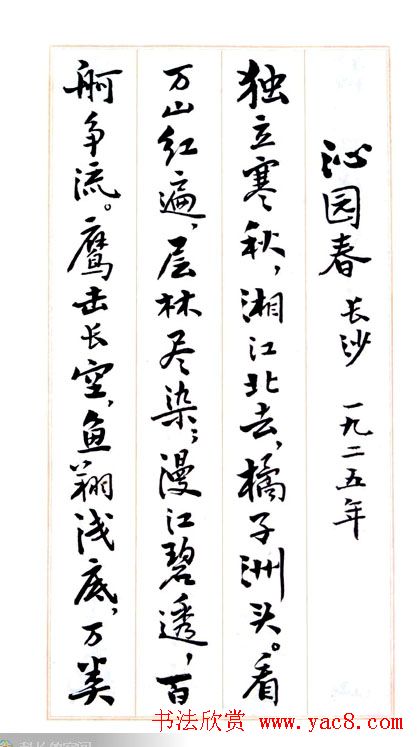 沁园春 长沙 一九二五年
独立寒秋，湘江北去，橘子洲头。看
万山红遍，层林尽染；漫江碧透，百
舸争流。鹰击长空，鱼翔浅底，万类
书法欣赏 www.yac8.com